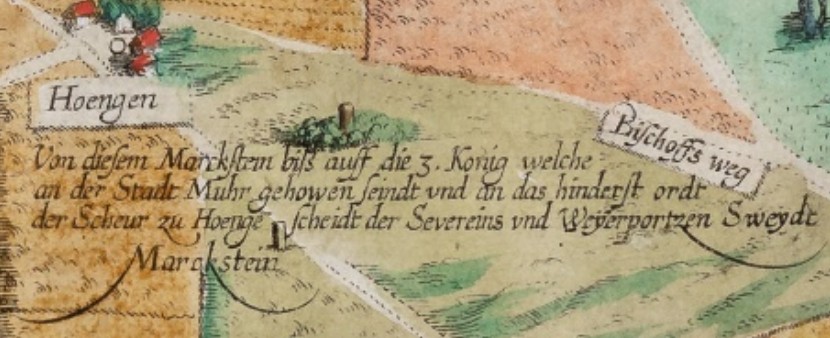 Hoengen
Bischoffs weg
Von diesem Marckstein biß auff die 3. Konig welche
an der Stadt Muhr gehowen seindt vnd an das hinderst ordt
der Scheur zu Hoenge scheidt der Severeins vnd Weÿerportzen Sweydt
Marckstein